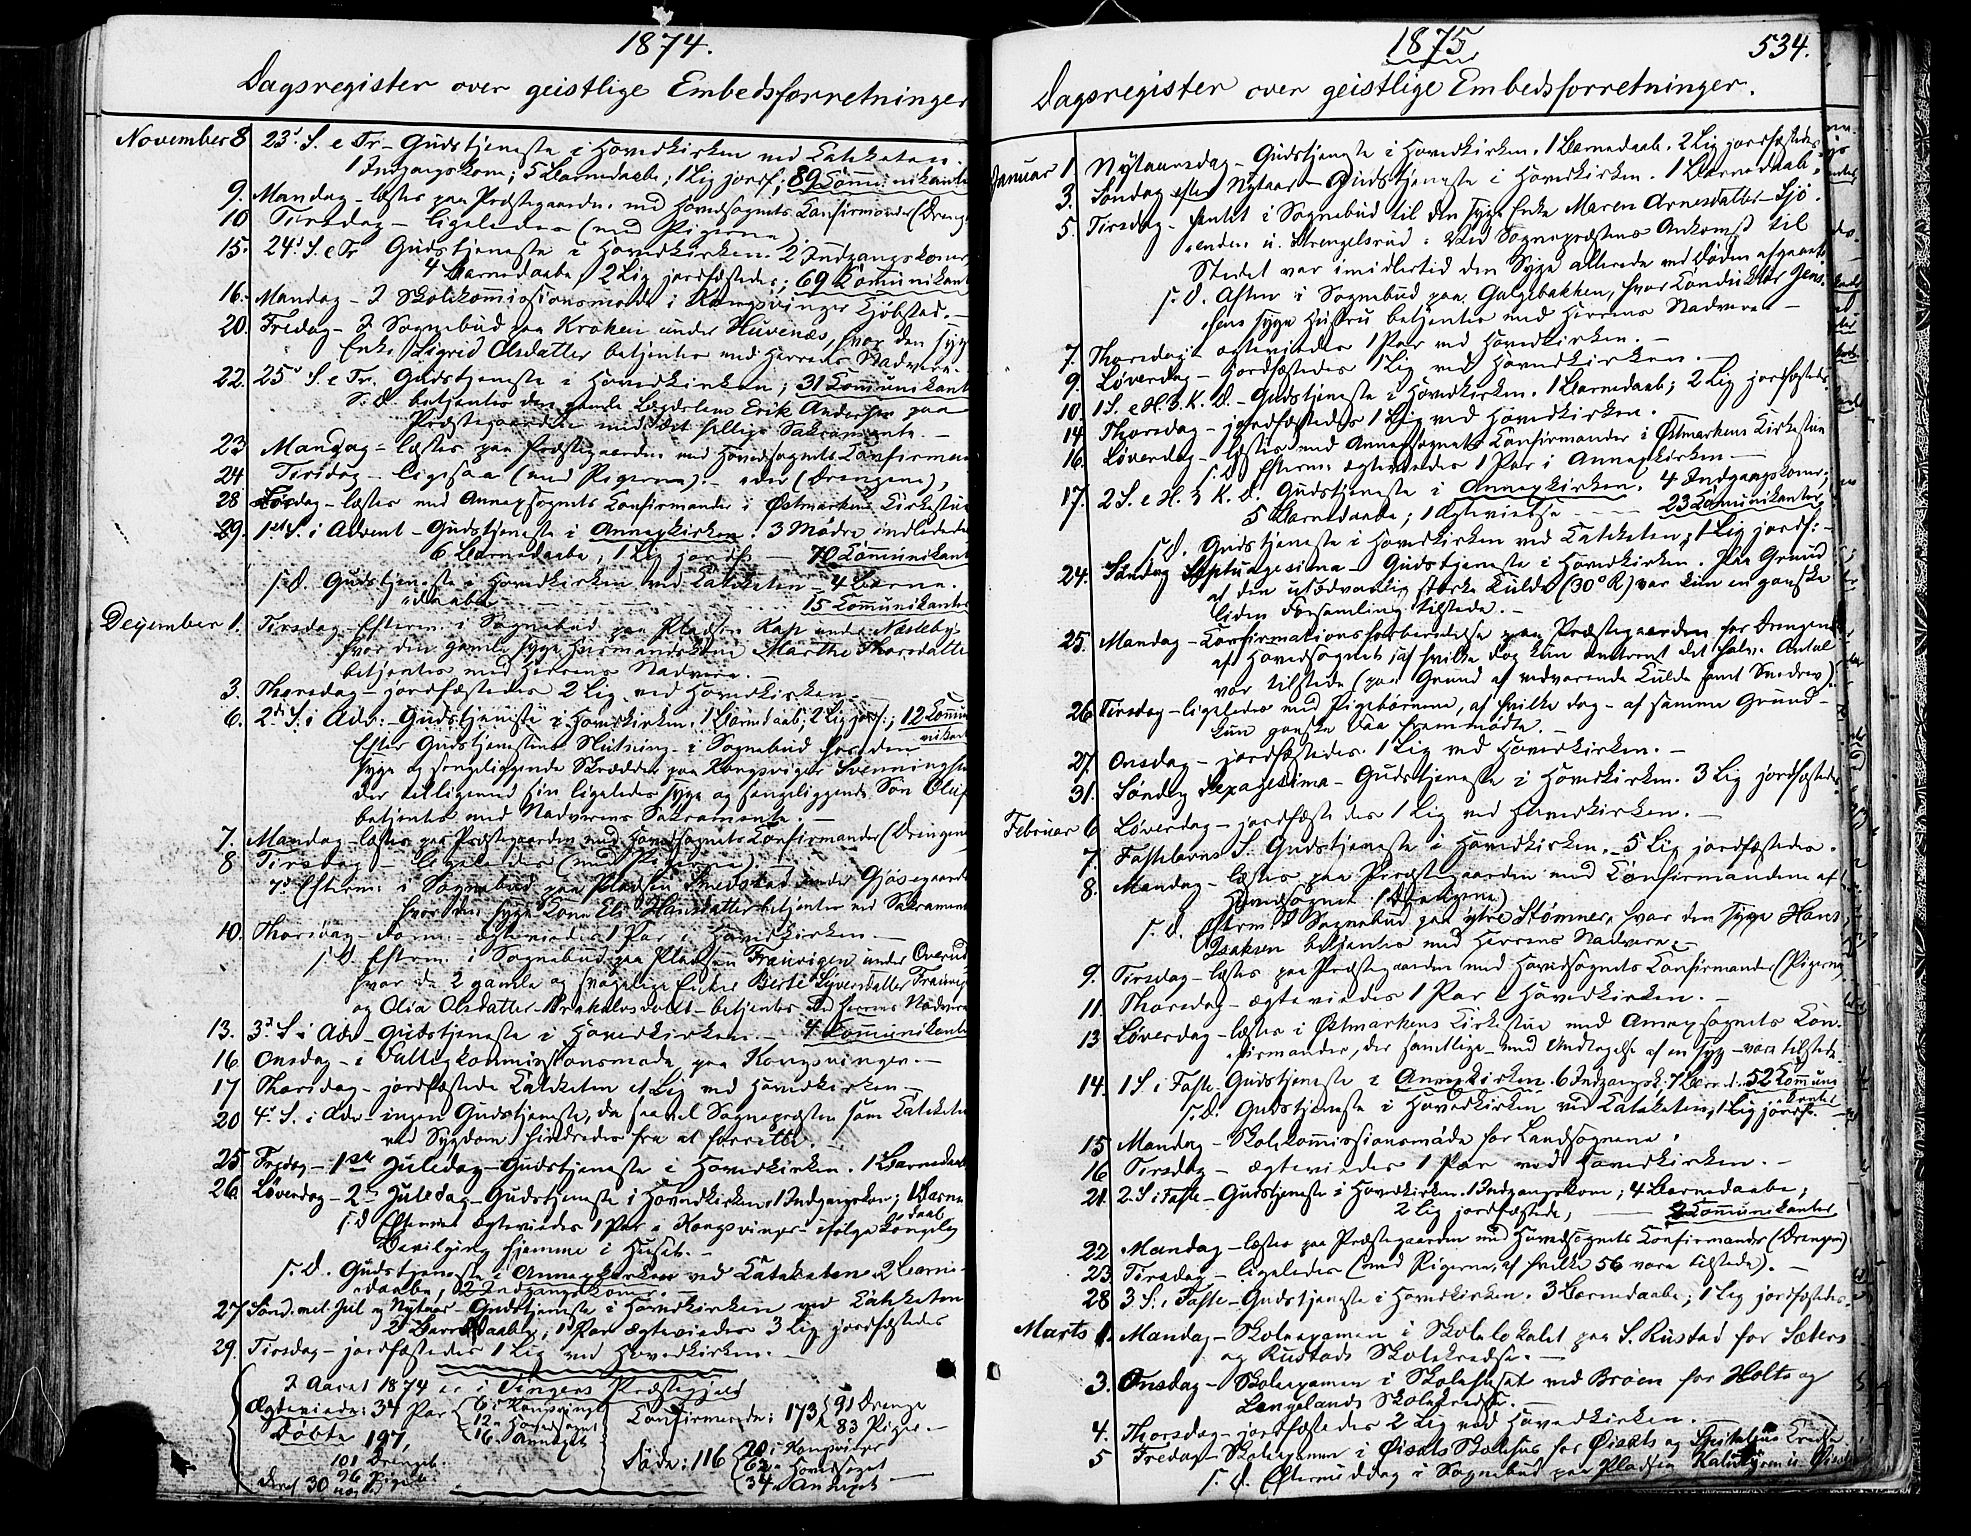 1874.
Dagsregister over geistlige Embedsforretninger
November 8 23d S. e Tr – Gudstjeneste i Hovedkirken ved Catecheten.
1 Indgangskone; 5 Barnedaabe; 1 Lig jordf; 89 Communikanter
9. Mandag – læstes paa Præstegaarden med Hovedsognets Confirmander (Drenge
10 Tirsdag – ligeledes (med Pigerne)
15. 24d S. e Tr Gudstjeneste i Hovedkirken. 2 Indgangskoner
4 Barnedaabe, 2 Lig jordfæstede; 69 Communikant
16. Mandag – I Skolekommissionsmøde i Kongsvinger Kjøbstad. –
20. Fredag – I Sognebud paa Kroken under Huvenæs, hvor den syge
Enke Sigrid Olsdatter betjentes med Herrens Nadvere. –
22. 25d S. e Tr. Gudstjeneste i Hovedkirken; 31 Communikant
S. D. betjentes den gamle Lægdslem Erik Andersen paa
Præstegaarden med det hellige Sakramente. –
23 Mandag – læstes paa Præstegaarden med Hovedsognets Confirman
24 Tirsdag – ligesaa (med Pigerne) – (Drengene),
28 Lørdag – læstes med Annexsognets Confirmander i Østmarkens Kirkestue
29. 1st S. i Advent – Gudstjeneste i Annexkirken. 3 Mødre indlededes
6 Barnedaabe, 1 Lig jordf. – 70 Communikant
s. D. Gudstjeneste i Hovedkirken ved Catecheten 4 Barne-
daabe 15 Communikanter
Dezember 1. Tirsdag – Efterm. i Sognebud paa Pladsen Kap under Næsleby
hvor den gamle syge Husmandskone Marthe Thorsdatte
betjentes med Herrens Nadvere. –
3. Thorsdag – jordfæstedes 2 Lig ved Hovedkirken. –
6. 2d S. i Adv. – Gudstjeneste i Hovedkirken. 1 Barnedaab; 2 Lig jordf.; 12 Commu
nikant
Efter Gudstjenestens Slutning – i Sognebud hos den
syge og sengeliggende Skrædder paa Kongsvinger Svenningsen
der tilligemed sin ligeledes syge og sengeliggende Søn Oluf
betjentes med Nadverens Sakramente. –
7. Mandag – læstes paa Præstegaarden med Hovedsognets Confirmander (Drengene
8 Tirsdag – ligeledes (med Pigerne)
7d Efterm: i Sognebud paa Pladsen Smedstad under Gjøsegaarde
hvor den syge Kone Eli Hansdatter betjentes ved Sakrament
10. Thorsdag – Form. – ægteviedes 1 Par i Hovedkirken. –
s. D. Efterm. i Sognebud paa Pladsen Frauvigen under Overud
hvor de 2 gamle og svagelige Enker Berte Syversdatter
og Olia Olsdatter betjentes med Herrens Nadvere
13. 3d S. i Adv – Gudstjeneste i Hovedkirken. – 4 Communikanter
16 Onsdag – i Fattigkommissionsmøde paa Kongsvinger. –
17 Thorsdag – jordfæstede Catecheten et Lig ved Hovedkirken –
20 4d S. i Adv – ingen Gudstjeneste, da saavel Sognepræsten som Catechete
ved Sygdom hindredes fra at forrette.
25 Fredag – 1ste Juledag – Gudstjeneste i Hovedkirken. 1 Barnedaab
26. Løverdag – 2d Juledag – Gudstjeneste i Hovedkirken. 1 Indgangskone; 1 Barne
daab
s. D Efterm. ægteviedes 1 Par i Kongsvinger – ifølge kongelig
Bevilgning hjemme i Huset. –
s. D. Gudstjeneste i Annexkirken ved Catecheten 2 Barne-
daabe, 2 Indgangskoner. –
27 Sønd. mel. Jul og Nytaar – Gudstjeneste i Hovedkirken ved Catecheten
2 Barnedaabe, 1 Par ægteviedes 3 Lig jordfæstedes
29. Tirsdag – jordfæstedes 1 Lig ved Hovedkirken. –
I Aaret 1874 er i Vingers Præstegjeld
Ægteviede: 34 Par 6 i Kongsvinger 12 " Hovedsognet 16 " Annexet
Confirmerede: 173 91 Drenge 83 Piger. –
Døbte 197, 101 Drenge 96 Piger
Deraf 30
Døde: 116 20 i Kongsvinger 62 " Hovedsognet 34 " Annexet
1875 534.
Dagsregister over geistlige Embedsforretninger.
Januar 1 Nytaarsdag – Gudstjeneste i Hovedkirken. 1 Barnedaab. 2 Lig jordfæstedes
3. Søndag efter Nytaar – Gudstjeneste i Hovedkirken. 1 Barnedaab
5. Tirsdag – hentet i Sognebud til den syge Enke Maren Arnesdatter Sjø-
enden u. Strengelsrud: Ved Sognepræstens Ankomst til
Stedet var imidlertid den Syge allerede ved Døden afgaaet
s. D. Aften i Sognebud paa Galgebakken, hvor Konduktør Jens-
sens syge Hustru betjentes med Herrens Nadvere –
7. Thorsdag – ægteviedes 1 Par ved Hovedkirken. –
9. Løverdag – jordfæstedes 1 Lig ved Hovedkirken. –
10. 1 S. e H. 3 K. D. – Gudstjeneste i Hovedkirken. 1 Barnedaab; 2 Lig jordfæstedes
14 Thorsdag – jordfæstedes 1 Lig ved Hovedkirken.
16. Løverdag – læstes med Annexsognets Confirmander i Østmarkens Kirkestue
s. D. Efterm: ægteviedes 1 Par i Annexkirken –
17. 2 S. e H. 3 K. D. Gudstjeneste i Annexkirken. 4 Indgangskoner;
5 Barnedaabe; 1 Ægtevielse – 23 Communikanter
s. D. Gudstjeneste i Hovedkirken ved Catecheten, 1 Lig jordf: –
24. Søndag Septuagesima – Gudstjeneste i Hovedkirken. Paa Grund
af den usædvanlig stærke Kulde (30° R) var kun en ganske
liden Forsamling tilstede. –
25. Mandag – Confirmationsforberedelse paa Præstegaarden for Drengene
af Hovedsognet, af hvilke dog kun omtrent det halve Antal
var tilstede (paa Grund af vedvarende Kulde samt Snedrev).
26 Tirsdag – ligeledes med Pigebørnene, af hvilke dog – af samme Grund –
kun ganske faa fremmødte. –
27. Onsdag – jordfæstedes 1 Lig ved Hovedkirken. –
31. Søndag Sexagesima – Gudstjeneste i Hovedkirken. 3 Lig jordfæstedes
Februar 6 Løverdag – jordfæstedes 1 Lig ved Hovedkirken. –
7. Fastelavns S. Gudstjeneste i Hovedkirken. – 5 Lig jordfæstedes.
8. Mandag – læstes paa Præstegaarden med Confirmanderne af
Hovedsognet (Drengene)
s. D. Efterm. I Sognebud paa ytre Stømner, hvor den syge Hans
Isaksen betjentes med Herrens Nadvere. –
9. Tirsdag – læstes paa Præstegaarden med Hovedsognets Confirmander (Pigerne)
11 Thorsdag – ægteviedes 1 Par i Hovedkirken. –
13 Løverdag – læstes i Østmarkens Kirkestue med Annexsognets Con-
firmander, der samtlige – med Undtagelse af en syg – vare tilstede
14. 1 S. i Faste – Gudstjeneste i Annexkirken. 6 Indgangsk. 7 Barned. 52 Commu
nikanter
s. D. Gudstjeneste i Hovedkirken ved Catecheten, 1 Lig jordf. –
15 Mandag – Skolekommissionsmøde for Landsognene.
16 Tirsdag – ægteviedes 1 Par ved Hovedkirken. –
21. 2. S. i Faste – Gudstjeneste i Hovedkirken. 1 Indgangskone; 4 Barnedaabe;
2 Lig jordfæstede, – Communikanter
22 Mandag – læstes paa Præstegaarden med Hovedsognets Confirmander (Drengene)
23. Tirsdag – ligeledes (med Pigerne, af hvilke 56 vare tilstede). –
28 3. S. i Faste – Gudstjeneste i Hovedkirken. 3 Barnedaabe; 1 Lig jordfæstedes.
Marts 1. Mandag – Skoleexamen i Skolelokalet paa S. Rustad for Sæters
og Rustads Skolekredse. –
3. Onsdag – Skoleexamen i Skolehuset ved Broen for Holts og
Lengelands Skolekredse. –
4. Thorsdag – jordfæstedes 2 Lig ved Hovedkirken. –
5 Fredag – Skoleexamen i Øiséts Skolehus for Øiséts og Kredse
s. D. Eftermiddag i Sognebud paa Pladsen